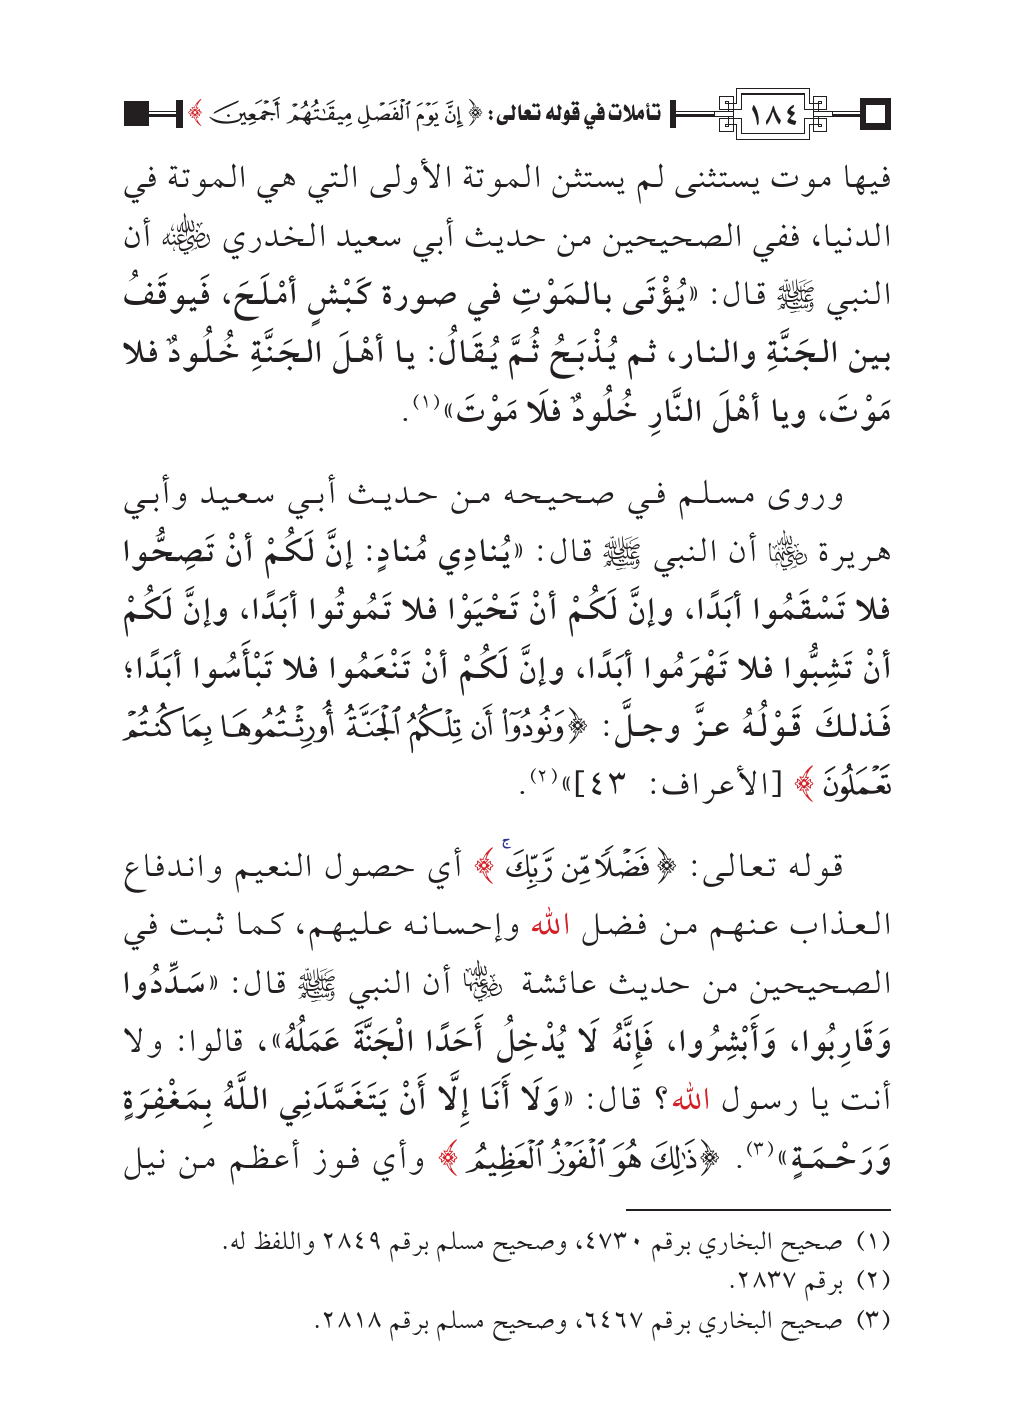 ١٨٤ تأملات في قوله تعالى: ﴿إِنَّ يَوْمَ الْفَصْلِ مِيقَاتُهُمْ أَجْمَعِينَ﴾
فيها موت يستثنى لم يستثن الموتة الأولى التي هي الموتة في
الدنيا، ففي الصحيحين من حديث أبي سعيد الخدري رضي الله عنه أن
النبي ﷺ قال: «يُؤْتَى بالمَوْتِ في صورة كَبْشٍ أمْلَحَ، فَيوقَفُ
بين الجَنَّةِ والنار، ثم يُذْبَحُ ثُمَّ يُقَالُ: يا أهْلَ الجَنَّةِ خُلُودٌ فلا
مَوْتَ، ويا أهْلَ النَّارِ خُلُودٌ فلَا مَوْتَ»(١).
وروى مسلم في صحيحه من حديث أبي سعيد وأبي
هريرة رضي الله عنهما أن النبي ﷺ قال: «يُنادِي مُنادٍ: إنَّ لَكُمْ أنْ تَصِحُّوا
فلا تَسْقَمُوا أبَدًا، وإنَّ لَكُمْ أنْ تَحْيَوْا فلا تَمُوتُوا أبَدًا، وإنَّ لَكُمْ
أنْ تَشِبُّوا فلا تَهْرَمُوا أبَدًا، وإنَّ لَكُمْ أنْ تَنْعَمُوا فلا تَبْأَسُوا أبَدًا؛
فَذلكَ قَوْلُهُ عزَّ وجلَّ: ﴿وَنُودُوٓاْ أَن تِلْكُمُ ٱلْجَنَّةُ أُورِثْتُمُوهَا بِمَا كُنتُمْ
تَعْمَلُونَ﴾ [الأعراف: ٤٣]»(٢).
قوله تعالى: ﴿فَضْلًا مِّن رَّبِّكَ ۚ﴾ أي حصول النعيم واندفاع
العذاب عنهم من فضل الله وإحسانه عليهم، كما ثبت في
الصحيحين من حديث عائشة رضي الله عنها أن النبي ﷺ قال: «سَدِّدُوا
وَقَارِبُوا، وَأَبْشِرُوا، فَإِنَّهُ لَا يُدْخِلُ أَحَدًا الْجَنَّةَ عَمَلُهُ»، قالوا: ولا
أنت يا رسول الله؟ قال: «وَلَا أَنَا إِلَّا أَنْ يَتَغَمَّدَنِي اللَّهُ بِمَغْفِرَةٍ
وَرَحْمَةٍ»(٣). ﴿ذَٰلِكَ هُوَ ٱلْفَوْزُ ٱلْعَظِيمُ﴾ وأي فوز أعظم من نيل
(١) صحيح البخاري برقم ٤٧٣٠، وصحيح مسلم برقم ٢٨٤٩ واللفظ له.
(٢) برقم ٢٨٣٧.
(٣) صحيح البخاري برقم ٦٤٦٧، وصحيح مسلم برقم ٢٨١٨.